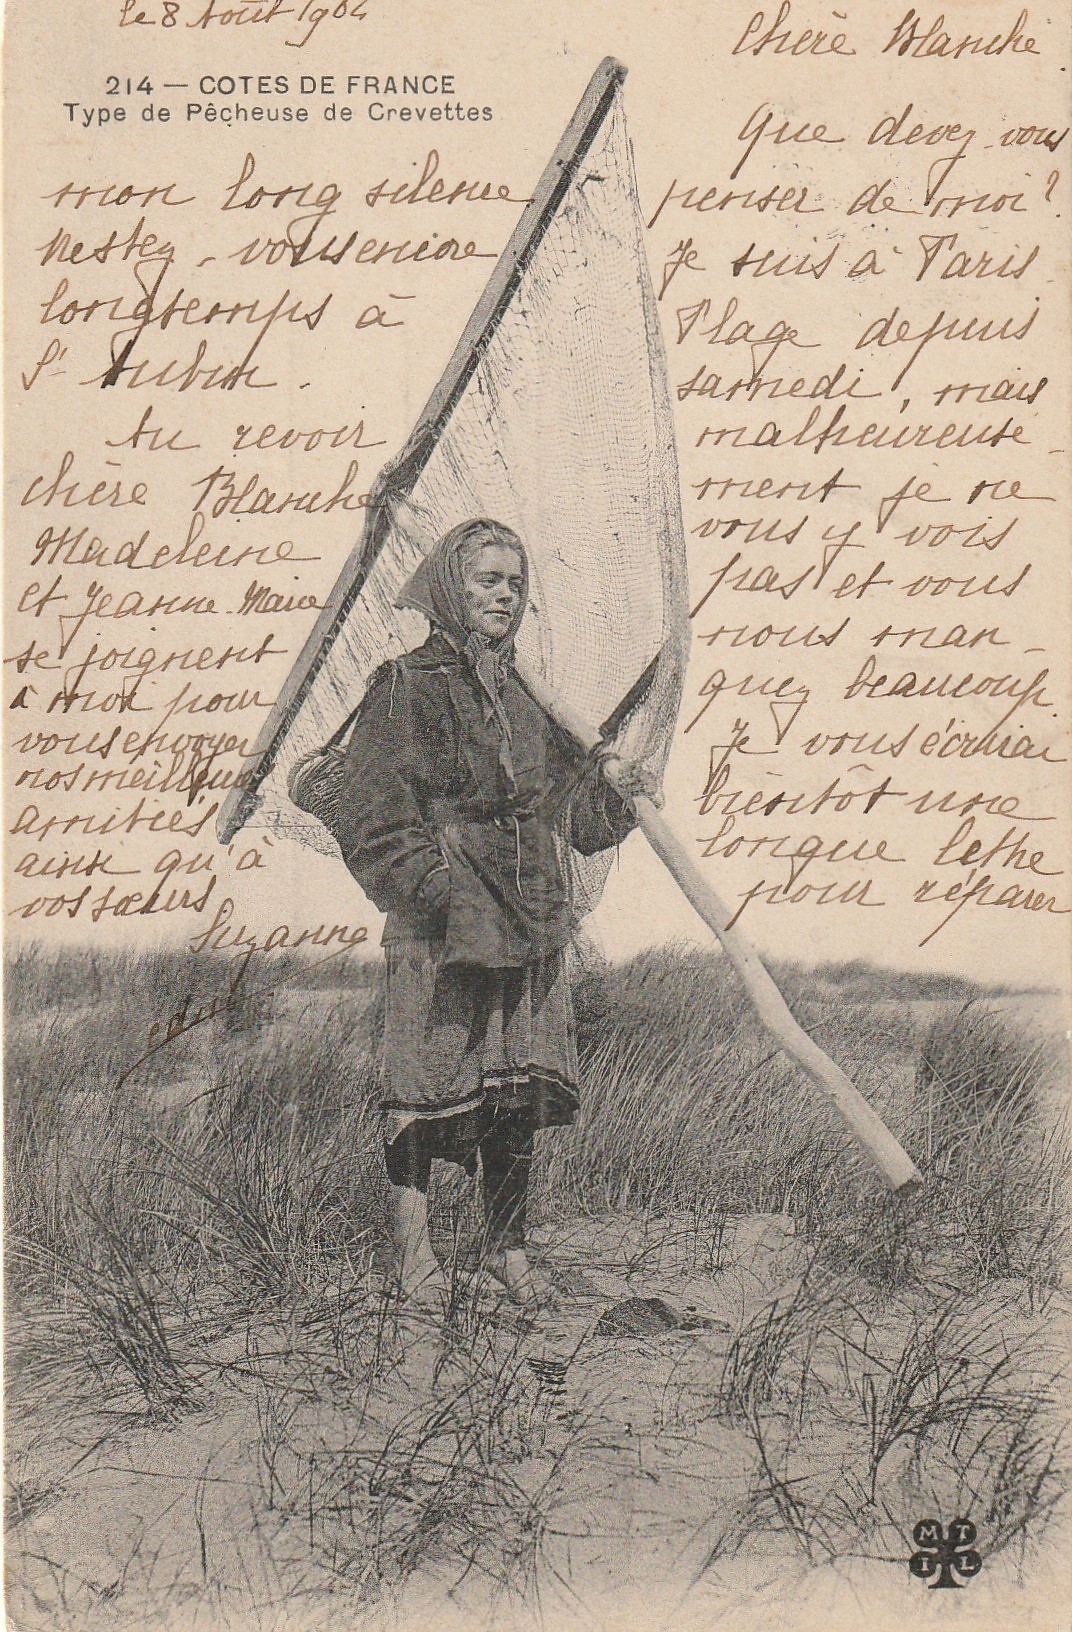 le 8 Août 1904
214 — COTES DE FRANCE
Type de Pêcheuse de Crevettes
Chère Blanche
Que devez vous
penser de moi ?
Je suis à Paris
Plage depuis
samedi, mais
malheureuse
ment je ne
vous y vois
pas et vous
nous man
quez beaucoup
Je vous écrirai
bientôt une
longue lettre
pour réparer
mon long silence
Restez-vous encore
longtemps à
St Aubin.
Au revoir
chère Blanche
Madeleine
et Jeanne Marie
se joignent
à moi pour
vous envoyer
nos meilleures
amitiés
ainsi qu'à
vos sœurs
Suzanne
M T
I L